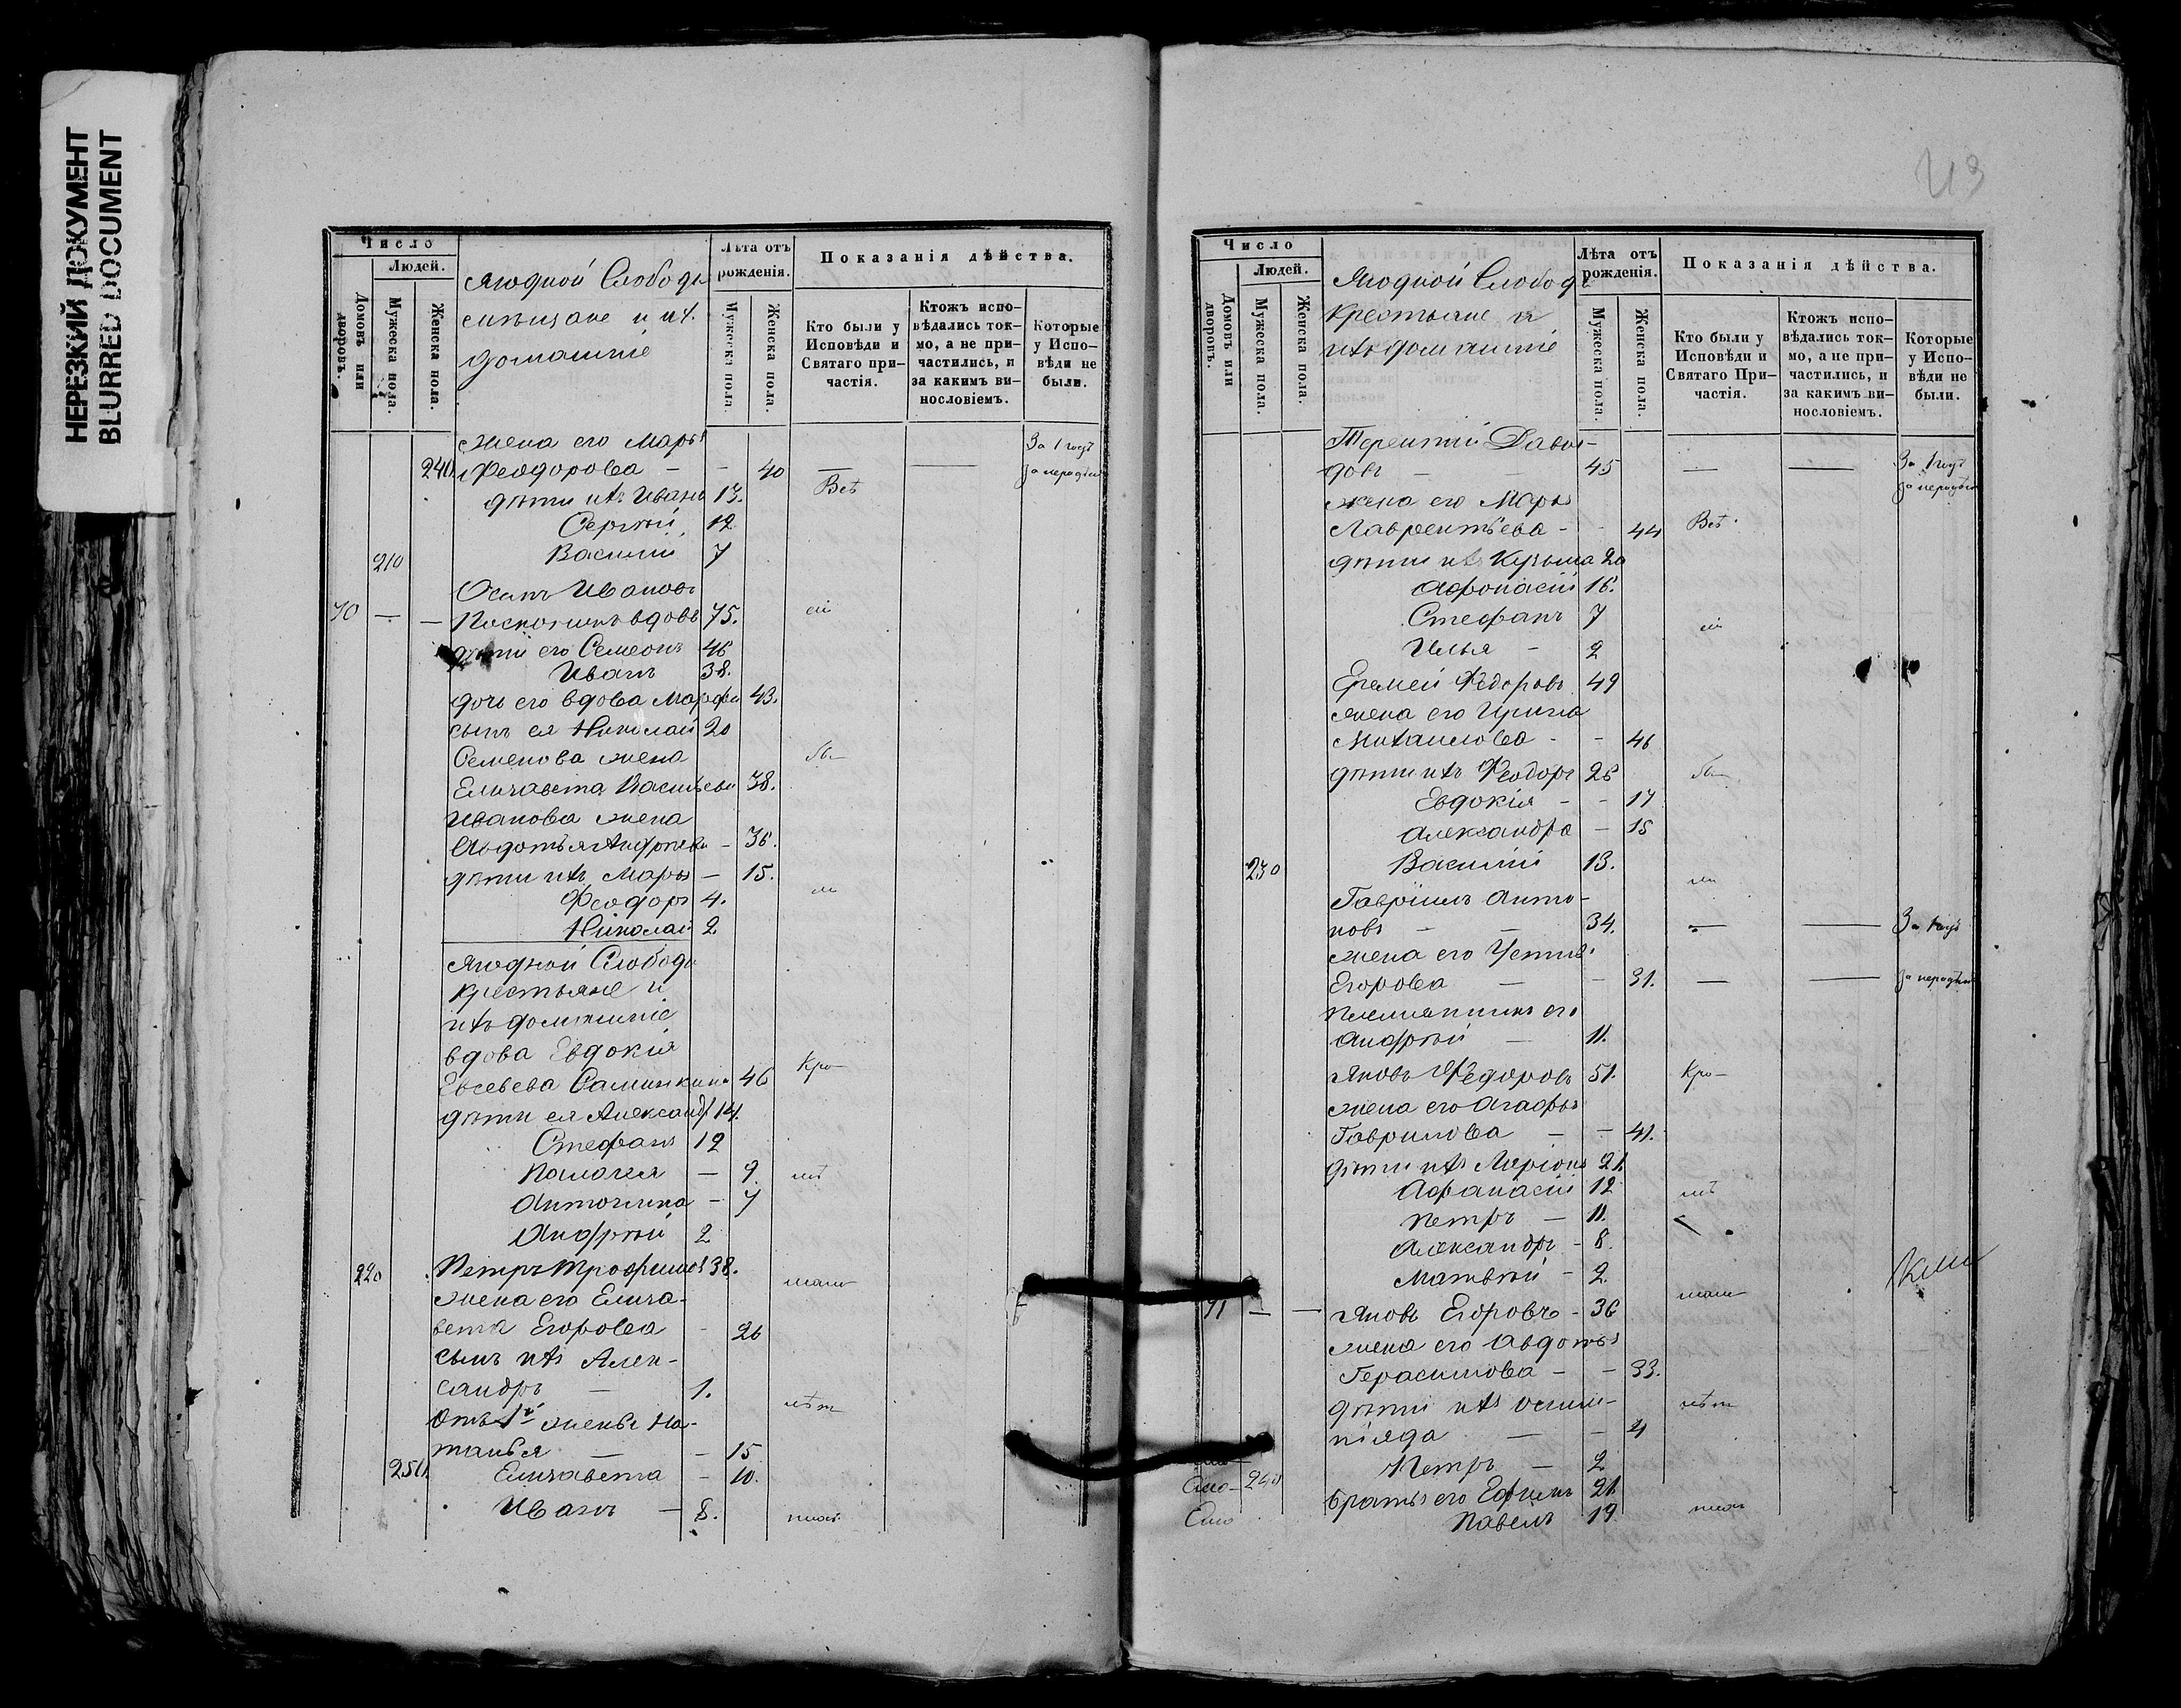 НЕРЕЗКИЙ ДОКУМЕНТ
BLURRED DOCUMENT
Число
Людей.
Домовъ или дворовъ.
Мужеска пола.
Женска пола.
Ягодной Слободы
мѣщане и их
домашніе
Лѣта отъ рожденія.
Мужеска пола.
Женска пола.
Показанія дѣйства.
Кто были у Исповѣди и Святаго причастія.
Ктожъ исповѣдались токмо, а не причастились, и за какимъ винословіемъ.
Которые у Исповѣди не были.
жена его Марья За 1 годъ
240 Ѳеодорова — — 40 — —
дѣти ихъ Иванъ 13. Всѣ
Сергѣй 12
210 Василій 7
Осипъ Ивановъ
70 — — вдовъ 75. сіи
дѣти его Семеонъ 46
Иванъ 38.
дочь его вдова Марфа 43.
сынъ ея Николай 20
Семенова жена бы
Елизавета Васильева 38.
Иванова жена
Авдотья Андреева — 36.
дѣти ихъ Марья — 15.
Ѳеодоръ 4. ли
Николай 2
Ягодной Слободы
крестьяне и
ихъ домашніе
вдова Евдокія
Евсевьева 46 Кро-
дѣти ея Александръ 14.
Стефанъ 12
Палагея — 9. мѣ
Антонина — 7
Андрей 2
220 Петръ Трофимовъ 38.
жена его Елиза-
вета Егорова - 26
сынъ ихъ Алек-
сандръ — 1.
отъ 1й жены На- лѣт
талья — — 15
250 Елизавета — 10.
Иванъ — 8.
Число
Людей.
Домовъ или дворовъ.
Мужеска пола.
Женска пола.
Ягодной Слободы
Крестьяне и
ихъ домашніе
Лѣта отъ рожденія.
Мужеска пола.
Женска пола.
Показанія дѣйства.
Кто были у Исповѣди и Святаго Причастія.
Ктожъ исповѣдались токмо, а не причастились, и за какимъ винословіемъ.
Которые у Исповѣди не были.
Терентій Давы-
довъ — 45 — — За 1 годъ
жена его Марья
Лаврентьева — - 44 Всѣ
дѣти ихъ Кузьма 20
Афонасій 16.
Стефанъ 7
Илья — 2 сіи
Еремей Ѳедоровъ 49
жена его Ирина
Михаилова - - 46
дѣти ихъ Ѳеодоръ 26 бы
Евдокія - - 17
Александра - 15
230 Василій 13.
Гавріилъ Анто- ли
новъ — — 34. — — За 1 годъ
жена его Устинья
Егорова — - 31. — —
племянникъ его
Андрей — 11.
Яковъ Ѳедоровъ 51. Кро-
жена его Агафья
Гаврилова — — 41.
дѣти ихъ Ларіонъ 21.
Афанасій 12 мѣ
Петръ — 11.
Александръ - 8.
Матвѣй - 2.
71 — — Яковъ Егоровъ - 36
жена его Авдотья
Герасимова — - 33.
дѣти ихъ Олим- лѣт
піяда — - 4
Петръ — 2
240 братья его Ефимъ 21.
Павелъ 19